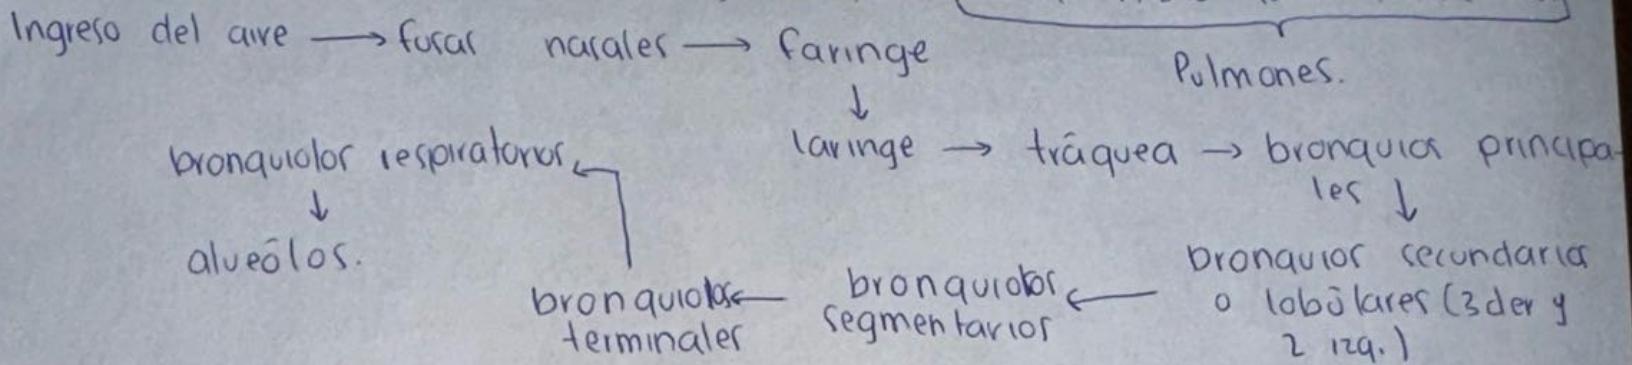 Ingreso del aire → fosas nasales → faringe
Pulmones.
↓
laringe → tráquea → bronquios principa-
les ↓
bronquios secundarios
o lobúlares (3 der y
2 izq.)
← bronquiolos
segmentarios
← bronquiolos
terminales
bronquiolos respiratorios
↓
alveólos.